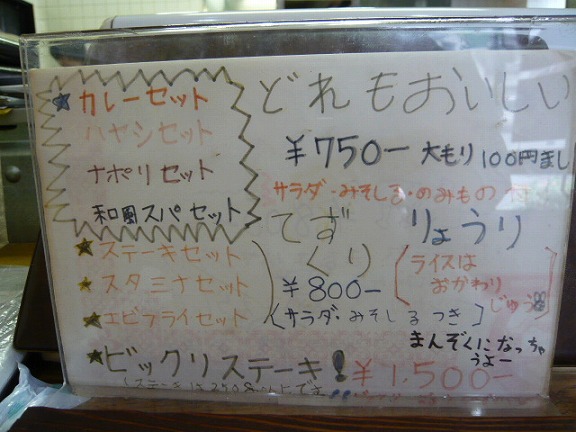 ★カレーセット
ハヤシセット
ナポリセット
和風スパセット
どれもおいしい
¥750ー 大もり100円まし
サラダ・みそしる・のみもの
てずくり りょうり
★ステーキセット
★スタミナセット
★エビフライセット
¥800ー
(サラダ・みそしるつき)
(ライスは
おかわり
じゆう
まんぞくになっちゃ
うよー
★ビックリステーキ!¥1,500ー
(ステーキは